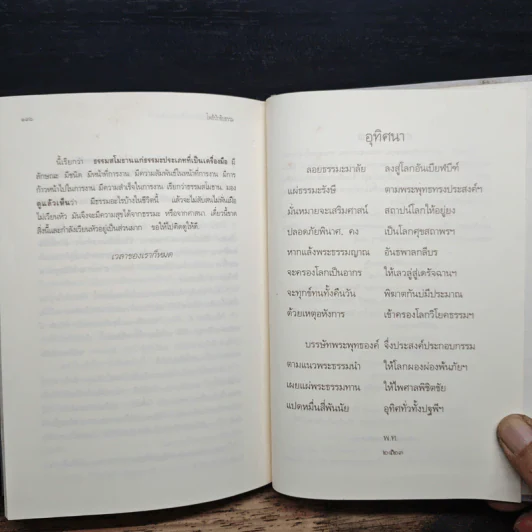 ๑๙๖
โพธิปักขิยธรรม
นี้เรียกว่า ธรรมสโมธานแก่ธรรมะประเภทที่เป็นเครื่องมือ มี
ลักษณะ มีชนิด มีหน้าที่การงาน, มีความสัมพันธ์ในหน้าที่การงาน มีการ
ก้าวหน้าไปในการงาน มีความสำเร็จในการงาน เรียกว่าธรรมสโมธาน, มอง
ดูแล้วเห็นว่า มีธรรมอะไรบ้างในชีวิตนี้ แล้วจะไม่สับสนไม่พันมือ
ไม่เวียนหัว มันจึงจะมีความสุขได้จากธรรมะ หรือจากศาสนา เดี๋ยวนี้ขาด
สิ่งนี้และกำลังเวียนหัวอยู่เป็นส่วนมาก ขอให้ไปคิดดูให้ดี.
เวลาของเราก็หมด
อุทิศนา
ลอยธรรมะมาลัย ลงสู่โลกอันเบียฬบีฑ์
แผ่ธรรมะรังษี ตามพระพุทธทรงประสงค์ฯ
มั่นหมายจะเสริมศาสน์ สถาปน์โลกให้อยู่ยง
ปลอดภัยพินาศ, คง เป็นโลกศุขสถาพรฯ
หากแล้งพระธรรมญาณ อันธพาลกลีบร
จะครองโลกเป็นอากร ให้เลวลู่สู่เดรัจฉานฯ
จะทุกข์ทนทั้งคืนวัน พิฆาตกันบ่มีประมาณ
ด้วยเหตุอหังการ เข้าครองโลกวิโยคธรรมฯ
บรรษัทพระพุทธองค์ จึ่งประสงค์ประกอบกรรม
ตามแนวพระธรรมนำ ให้โลกผองผ่องพ้นภัยฯ
เผยแผ่พระธรรมทาน ให้ไพศาลพิชิตชัย
แปดหมื่นสี่พันนัย อุทิศทั่วทั้งปฐพีฯ
พ.ท.
๒๕๒๓